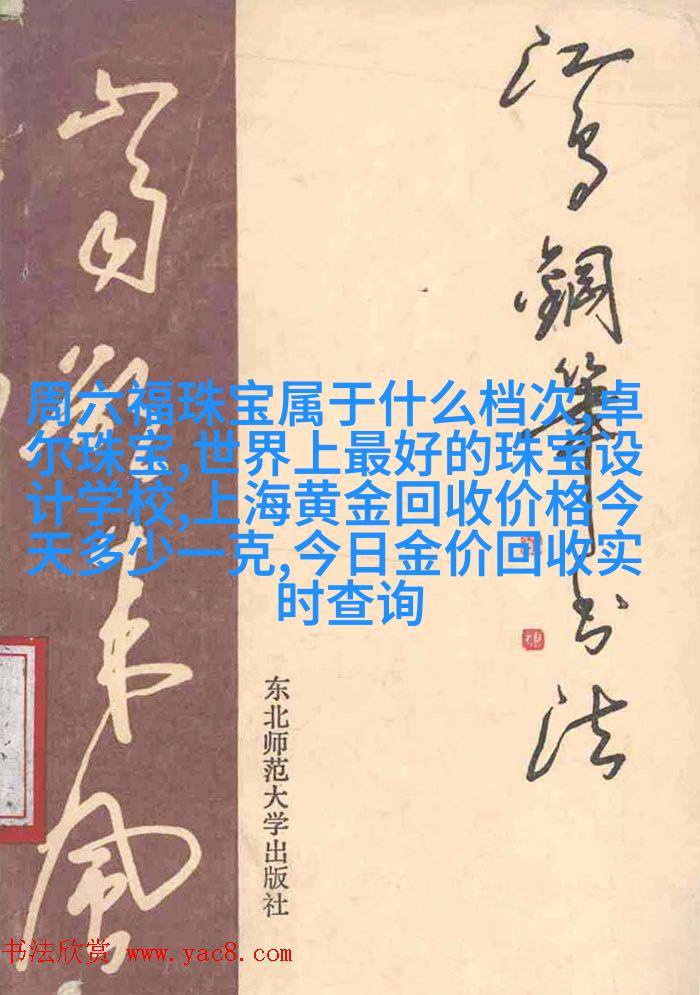 江鸟鋼筆书法
周六福珠宝属于什么档次,卓
尔珠宝,世界上最好的珠宝设
计学校,上海黄金回收价格今
天多少一克,今日金价回收实
时查询
东北师范大学出版社
书法欣赏 www.yac8.com